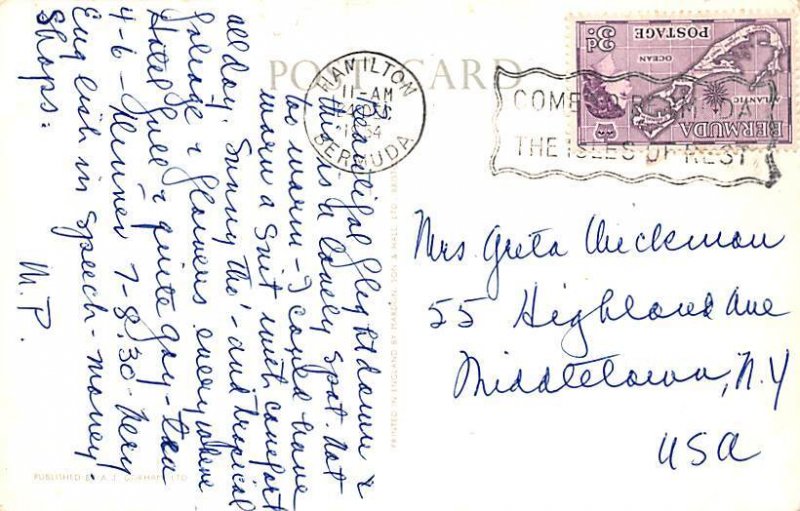 POST CARD
HAMILTON
11-AM
BERMUDA
COME TO BERMUDA
THE ISLES OF REST
3d
POSTAGE
OCEAN
ATLANTIC
BERMUDA
Beautiful flight down &
this is a lovely spot. Not
too warm - I could have
worn a suit with comfort
all day. Sunny tho' - and tropical
foliage & flowers everywhere
Hotel full & quite gay - tea
4-6 - Dinner 7-8:30. Very
English in speech - money
Shops.
M.P.
Mrs. Greta Wickman
55 Highland Ave
Middletown, N.Y
USA
PRINTED IN ENGLAND BY
SON & HALL LTD
PUBLISHED BY A. J. GORHAM LTD